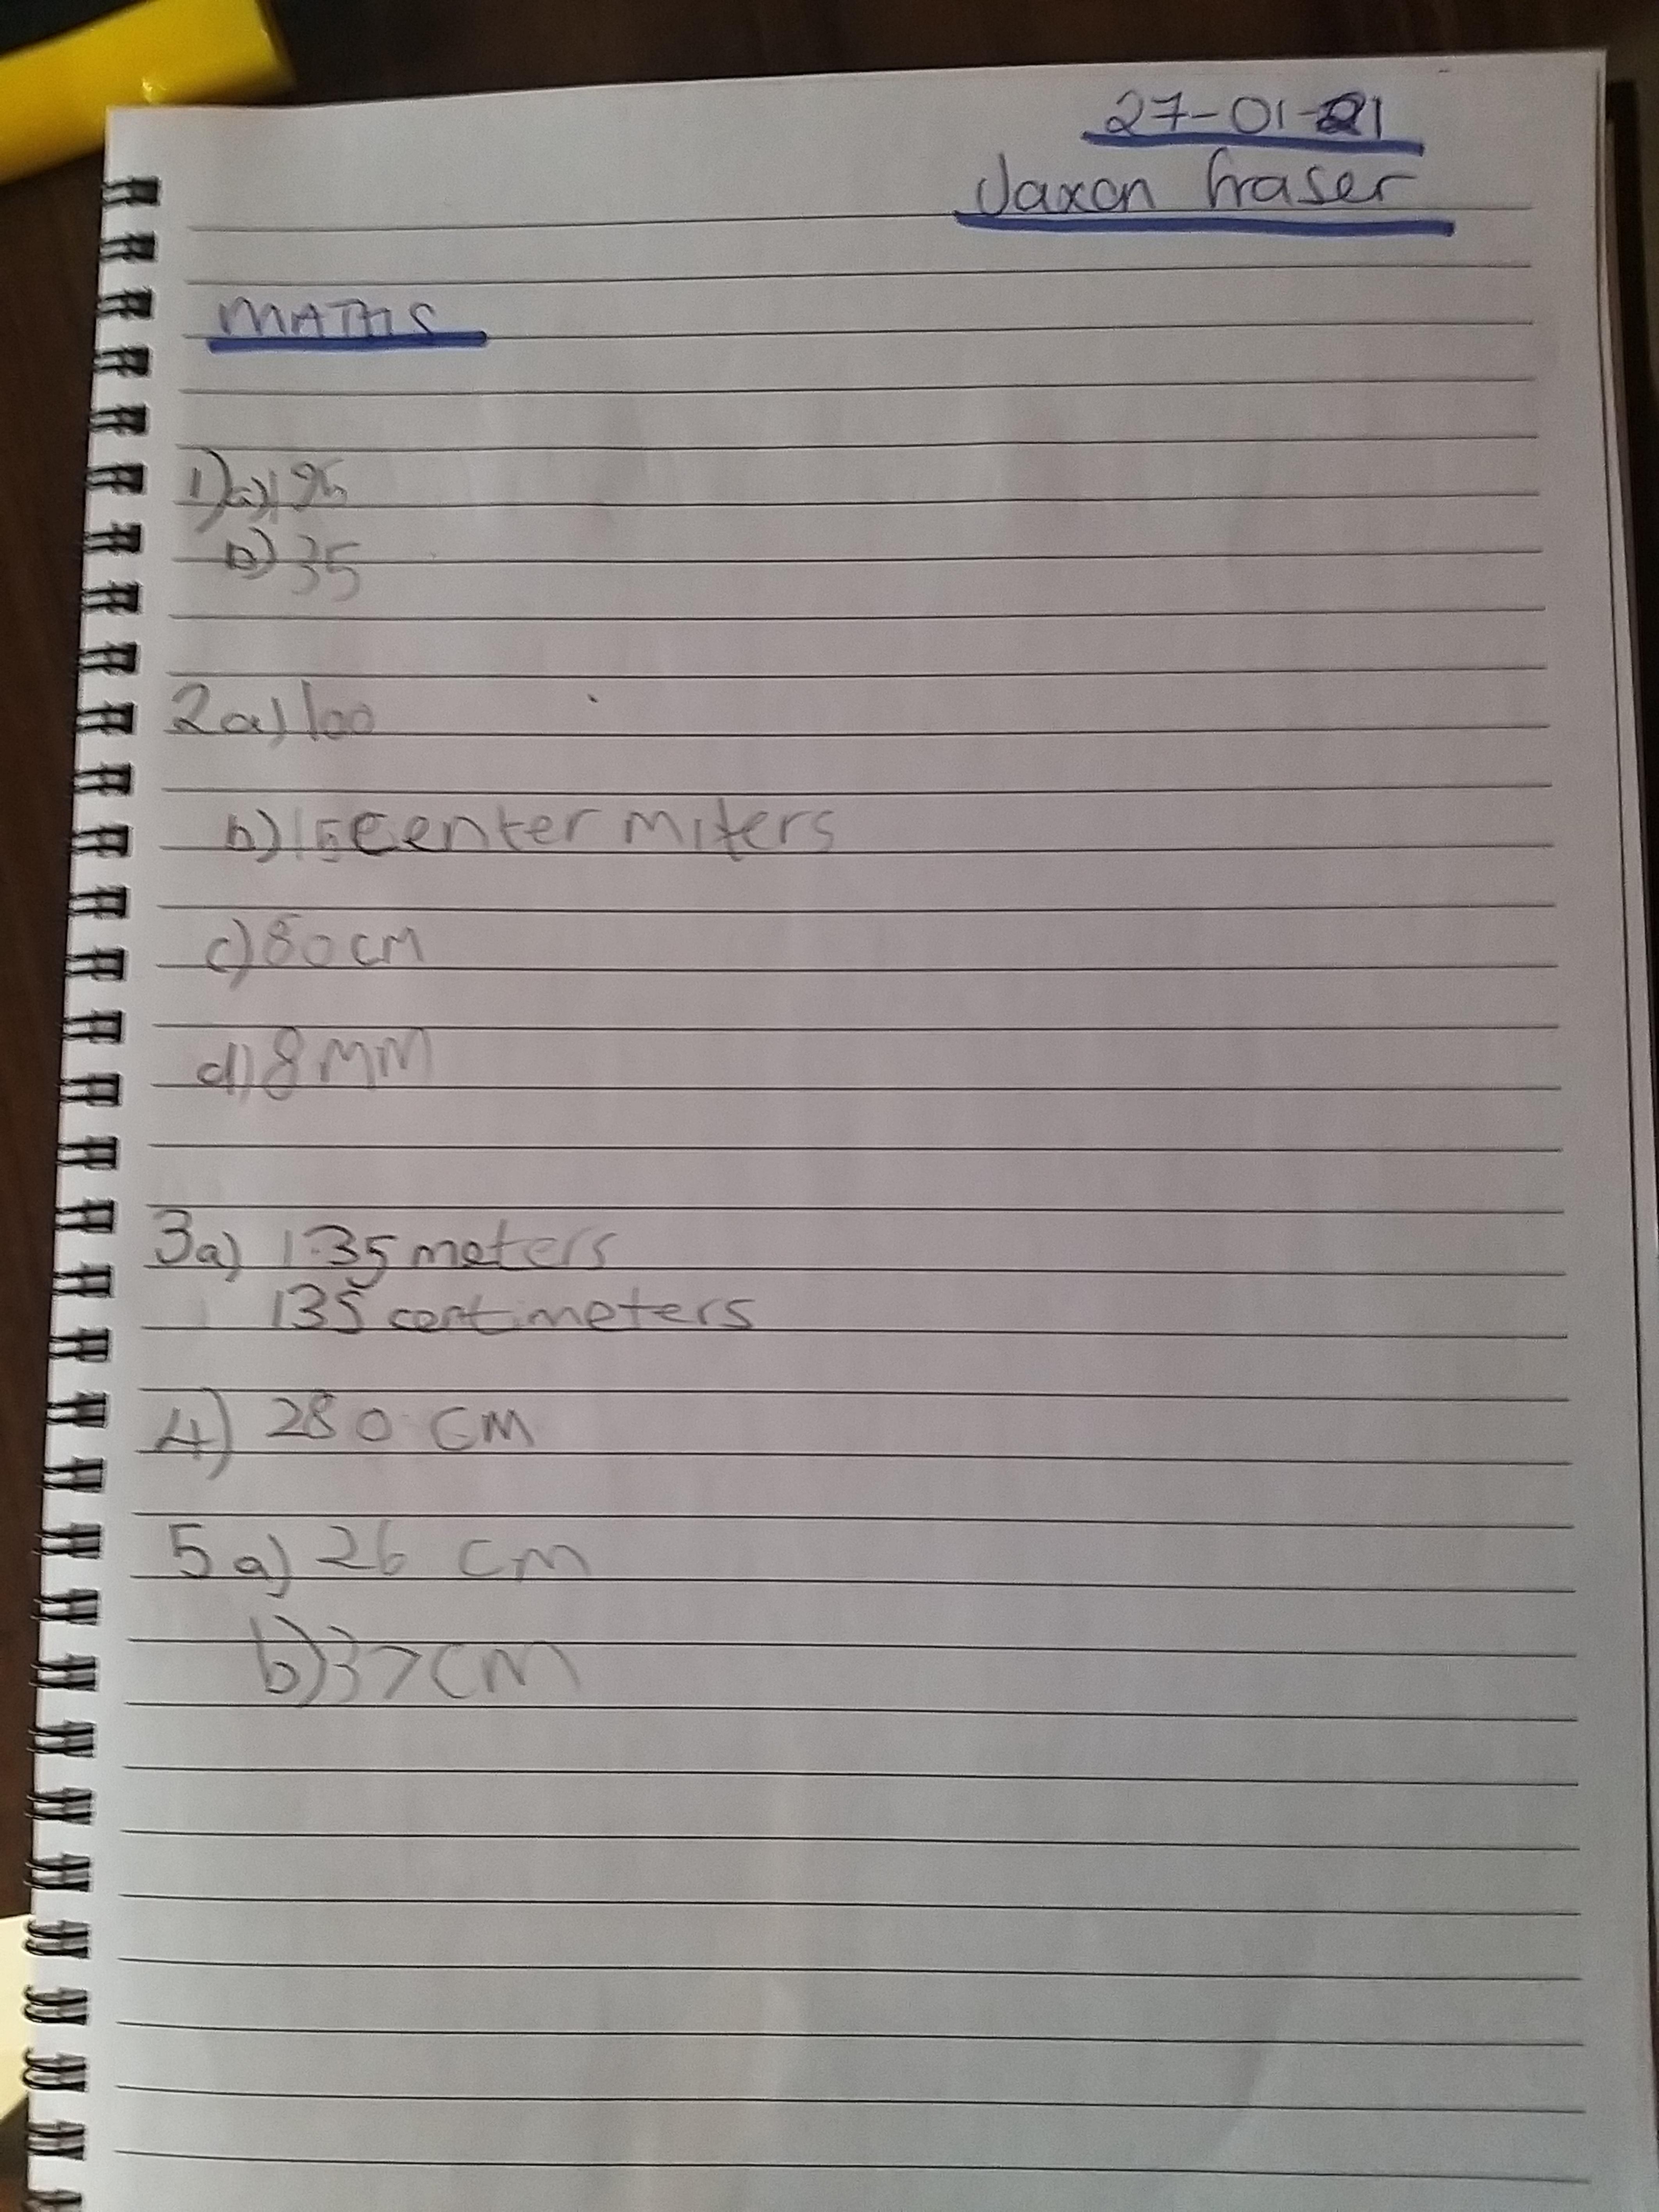 27-01-21
Jaxon Fraser
MATHS
1)a)196
b)35
2a)100
b)15centermiters
c)80cm
d)8mm
3a) 1.35meters
135 centimeters
4) 280 cm
5a) 26 cm
b)37cm